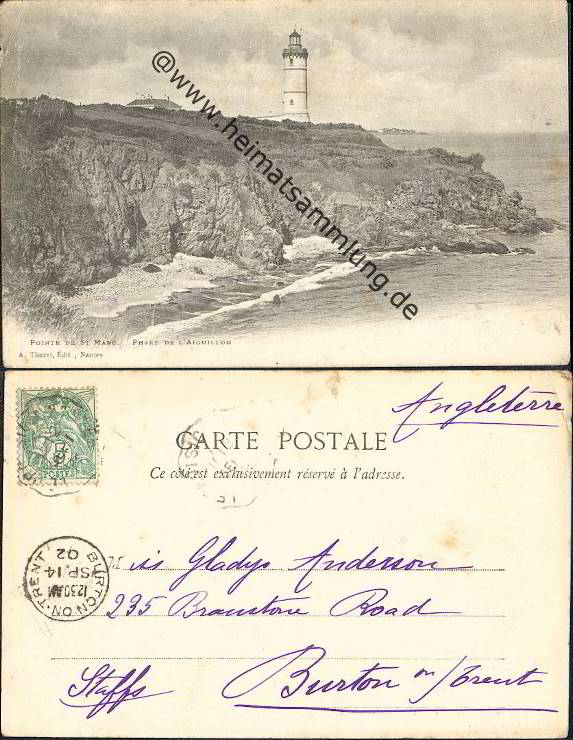 @www.heimatsammlung.de
POINTE DE ST MARC. PHARE DE L'AIGUILLON
A. Tharet, Édit., Nantes
POSTES
Angleterre
CARTE POSTALE
Ce côté est exclusivement réservé à l'adresse.
BURTON-ON-TRENT
12.30 AM
SP 14
02
Miss Gladys Anderson
235 Branstone Road
Burton on/Trent
Staffs